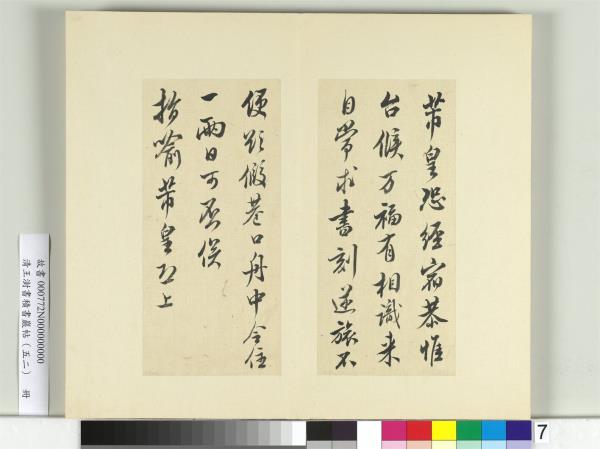 芾皇恐經宿恭惟
台候万福有相識来
自常求書刻逆旅不
便欲假巷口舟中令住
一兩日可否俟
指喻芾皇恐上
故書 000772N000000000
清王澍書積書巖帖（五二） 冊
7